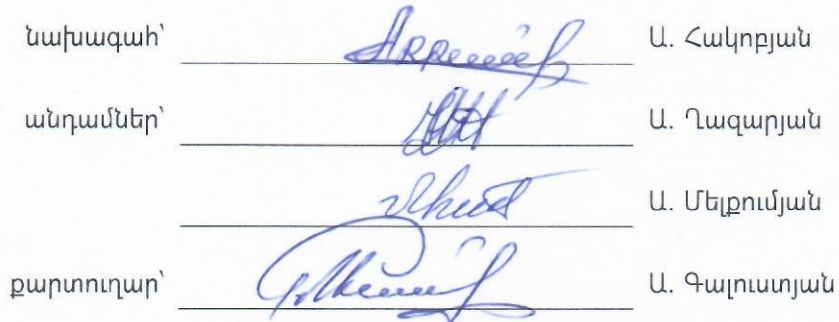 նախագահ՝ Ա. Հակոբյան
անդամներ՝ Ա. Ղազարյան
Ա. Մելքումյան
քարտուղար՝ Ա. Գալուստյան